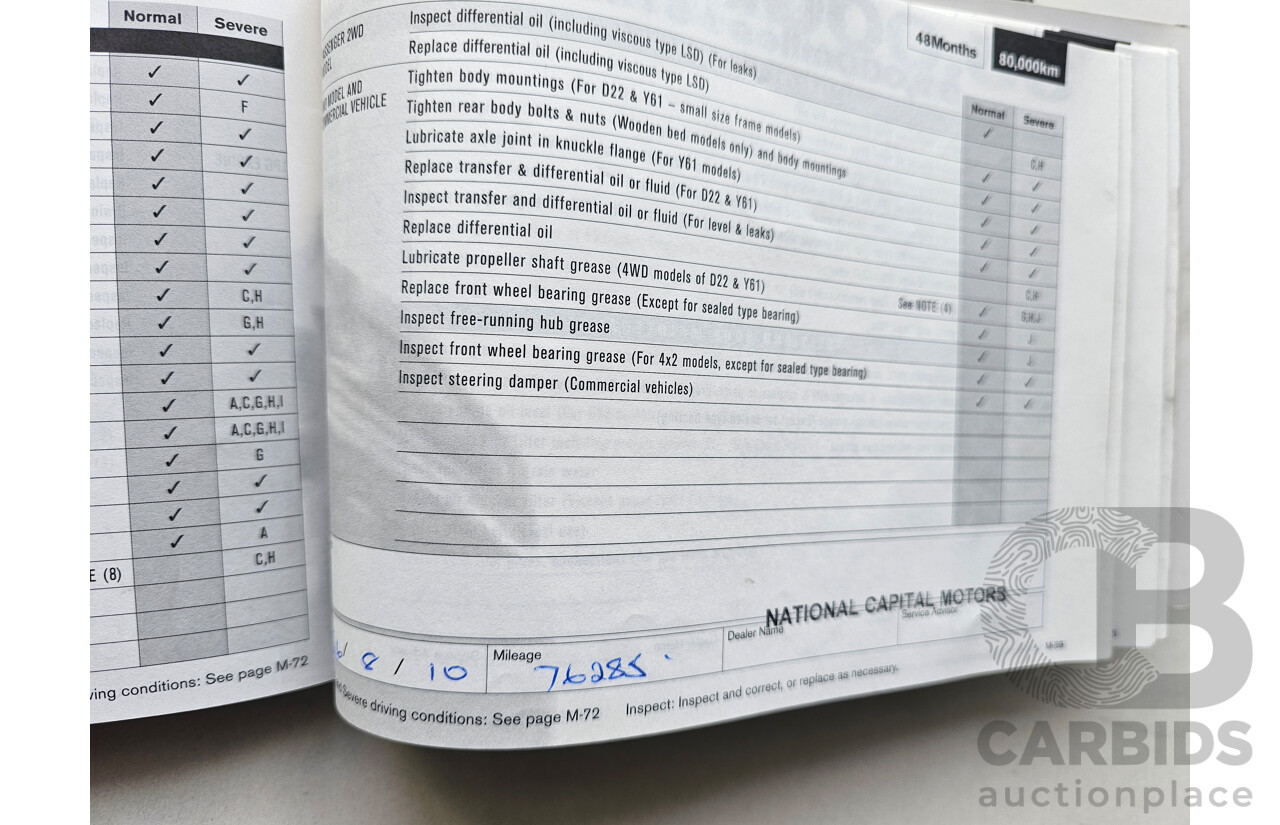 Normal Severe
✓ ✓
✓ F
✓ ✓
✓ ✓
✓ ✓
✓ ✓
✓ ✓
✓ ✓
✓ C,H
✓ G,H
✓ ✓
✓ ✓
✓ A,C,G,H,I
✓ A,C,G,H,I
✓ G
✓ ✓
✓ ✓
✓ A
C,H
E (8)
driving conditions: See page M-72
48Months 80,000km
Normal Severe
2WD
MODEL AND
VEHICLE
Inspect differential oil (including viscous type LSD) (For leaks)
Replace differential oil (including viscous type LSD)
Tighten body mountings (For D22 & Y61 – small size frame models)
Tighten rear body bolts & nuts (Wooden bed models only) and body mountings
Lubricate axle joint in knuckle flange (For Y61 models)
Replace transfer & differential oil or fluid (For D22 & Y61)
Inspect transfer and differential oil or fluid (For level & leaks)
Replace differential oil
Lubricate propeller shaft grease (4WD models of D22 & Y61)
Replace front wheel bearing grease (Except for sealed type bearing) See NOTE (4)
Inspect free-running hub grease
Inspect front wheel bearing grease (For 4x2 models, except for sealed type bearing)
Inspect steering damper (Commercial vehicles)
NATIONAL CAPITAL MOTORS
/ 8 / 10 Mileage 76285 Dealer Name Service Advisor
Severe driving conditions: See page M-72 Inspect: Inspect and correct, or replace as necessary.
CARBIDS
auctionplace